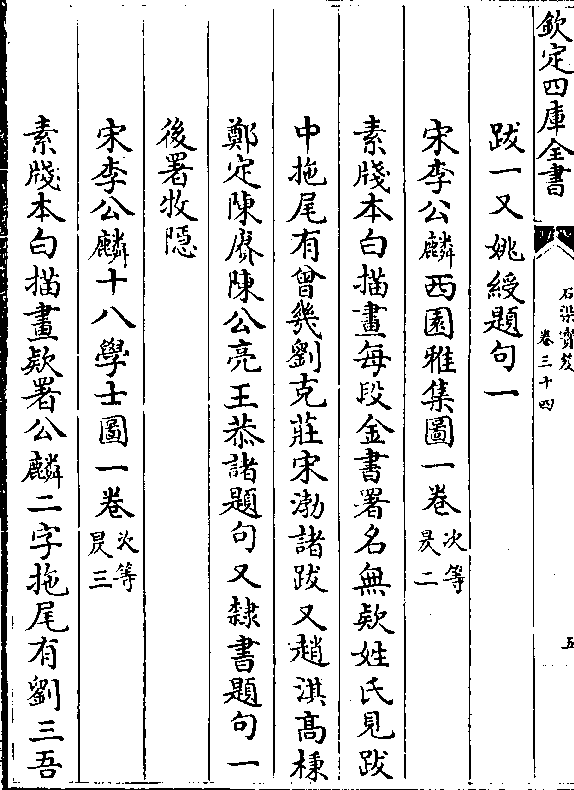 欽定四庫全書
石渠寶笈
卷三十四
五
跋一又姚綬題句一
宋李公麟西園雅集圖一卷次等
昃二
素牋本白描畫每段金書署名無款姓氏見跋
中拖尾有曾幾劉克莊宋渤諸跋又趙淇高棅
鄭定陳賡陳公亮王恭諸題句又隸書題句一
後署牧隱
宋李公麟十八學士圖一卷次等
昃三
素牋本白描畫款署公麟二字拖尾有劉三吾